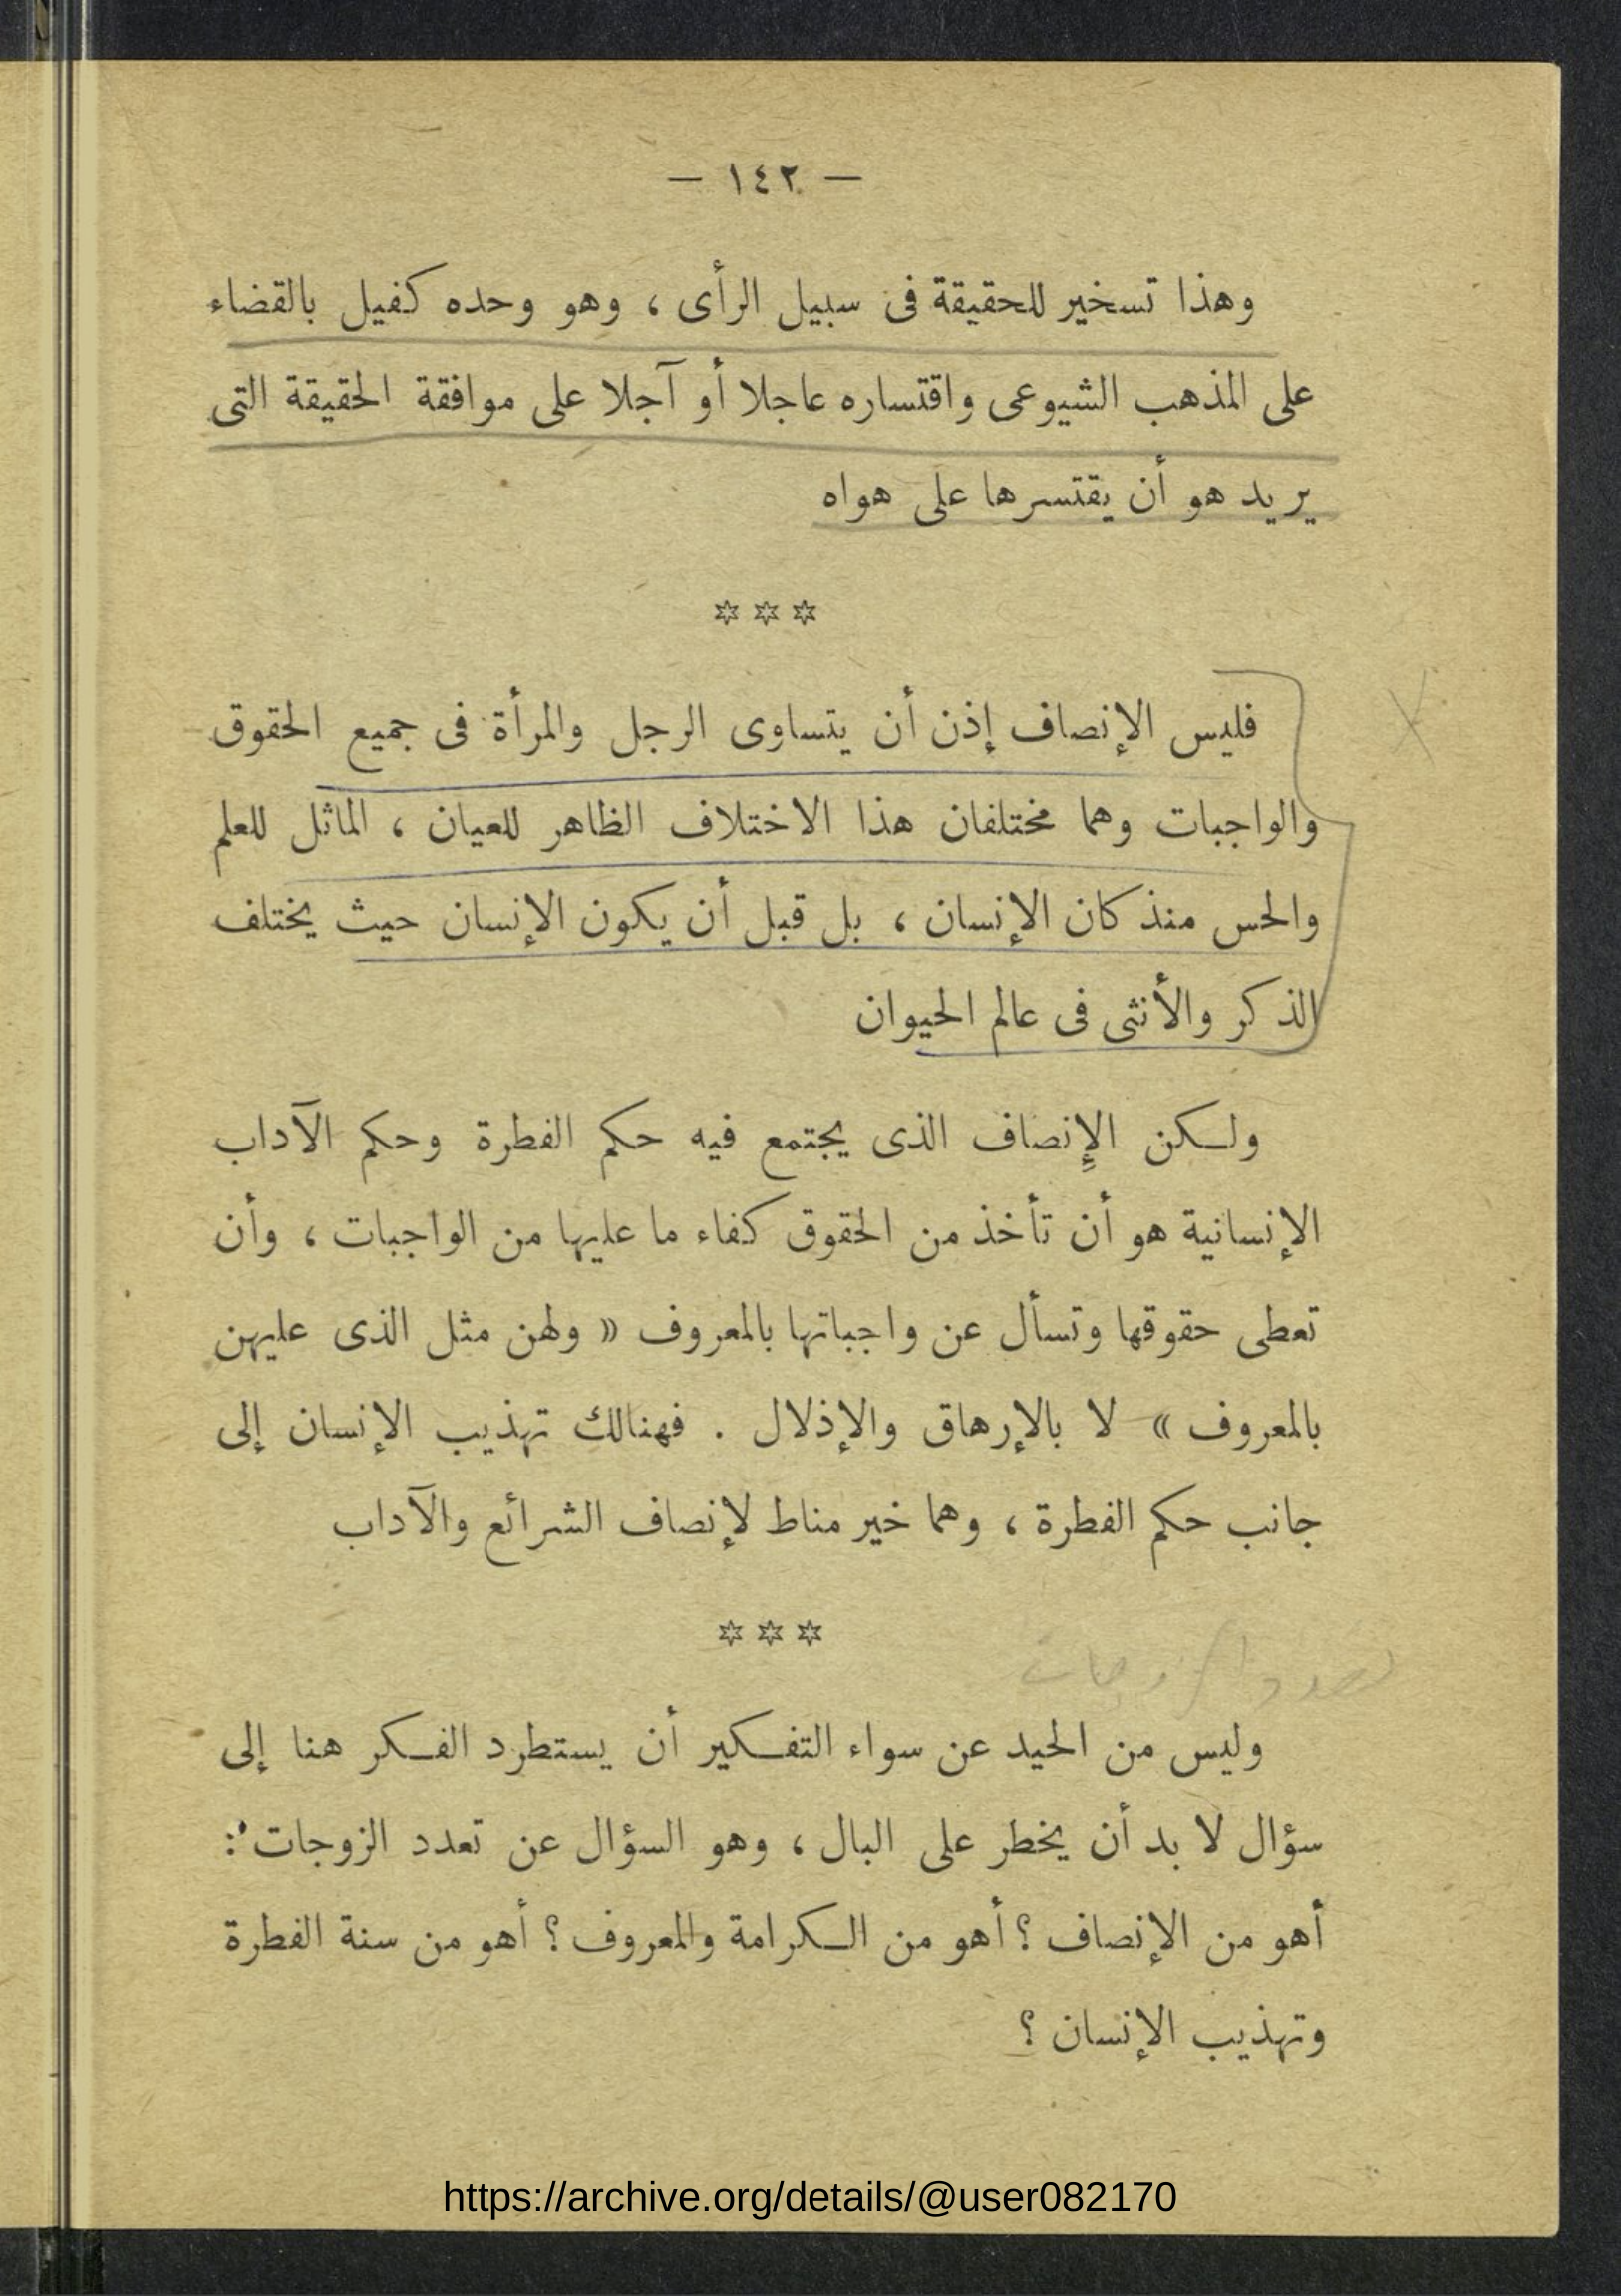 — ١٤٢ —
وهذا تسخير للحقيقة فى سبيل الرأى ، وهو وحده كفيل بالقضاء
على المذهب الشيوعى واقتساره عاجلا أو آجلا على موافقة الحقيقة التى
يريد هو أن يقتسرها على هواه
* * *
فليس الإنصاف إذن أن يتساوى الرجل والمرأة فى جميع الحقوق
والواجبات وهما مختلفان هذا الاختلاف الظاهر للعيان ، الماثل للعلم
والحس منذ كان الإنسان ، بل قبل أن يكون الإنسان حيث يختلف
الذكر والأنثى فى عالم الحيوان
ولكن الإِنصاف الذى يجتمع فيه حكم الفطرة وحكم الآداب
الإنسانية هو أن تأخذ من الحقوق كفاء ما عليها من الواجبات ، وأن
تعطى حقوقها وتسأل عن واجباتها بالمعروف « ولهن مثل الذى عليهن
بالمعروف » لا بالإرهاق والإذلال . فهنالك تهذيب الإنسان إلى
جانب حكم الفطرة ، وهما خير مناط لإنصاف الشرائع والآداب
* * *
تعدد الزوجات
وليس من الحيد عن سواء التفكير أن يستطرد الفكر هنا إلى
سؤال لا بد أن يخطر على البال ، وهو السؤال عن تعدد الزوجات :
أهو من الإنصاف ؟ أهو من الكرامة والمعروف ؟ أهو من سنة الفطرة
وتهذيب الإنسان ؟
https://archive.org/details/@user082170